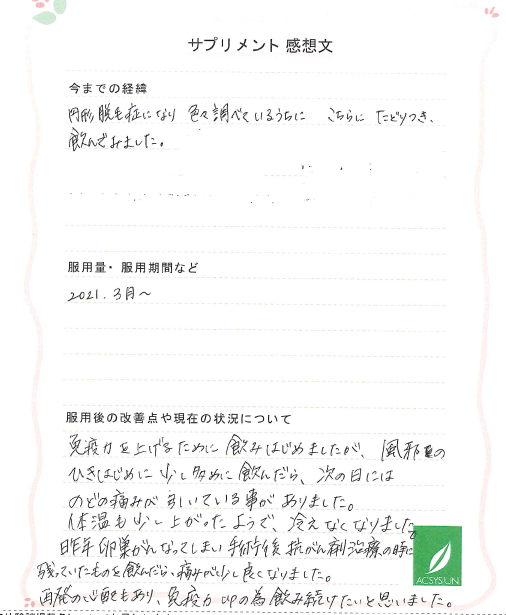 サプリメント 感想文
今までの経緯
円形脱毛症になり 色々調べているうちに こちらに たどりつき、
飲んでみました。
服用量・服用期間など
2021.3月～
服用後の改善点や現在の状況について
免疫力を上げるために飲みはじめましたが、風邪の
ひきはじめに少し多めに飲んだら、次の日には
のどの痛みが引いている事がありました。
体温も少し上がったようで、冷えなくなりました。
昨年卵巣がんなってしまい手術後抗がん剤治療の時に
残っていたものを飲んだら、痛みが少し良くなりました。
再発の心配もあり、免疫力upの為飲み続けたいと思いました。
ACSYSUN